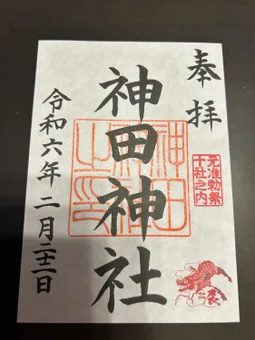 奉拝
元准勅祭
十社之内
神田神社
令和六年二月二十二日
辰